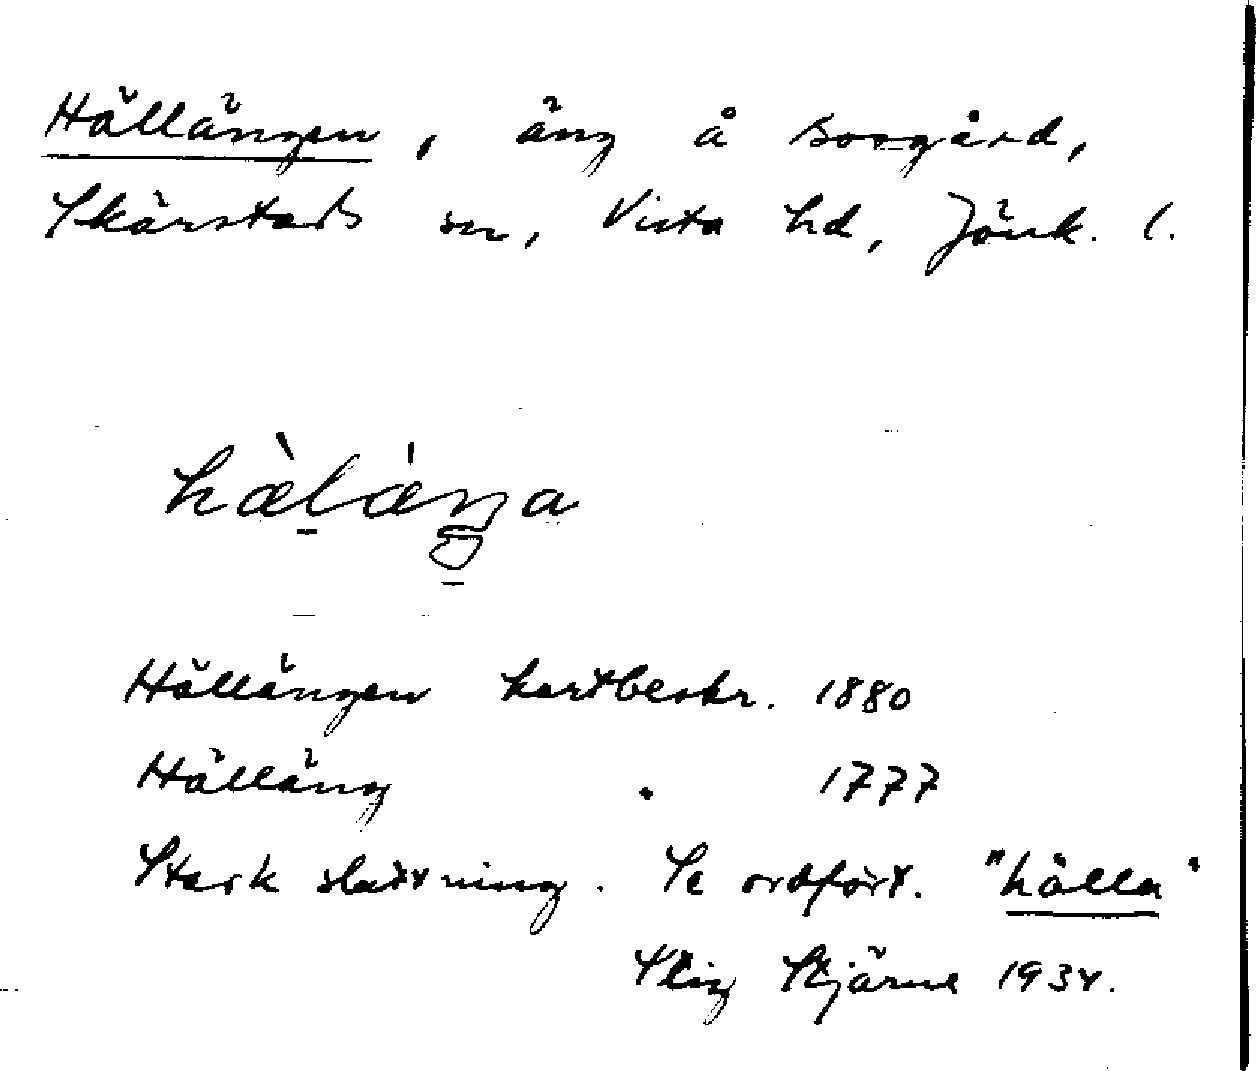 Hällängen, äng å Bosgård,
Skärstads sn, Vista hd, Jönk. l.
hæ̀lǽŋa
Hällängen kartbeskr. 1880
Hälläng " 1777
Stark sluttning. Se ordfört. "hälla"
Stig Stjärne 1934.